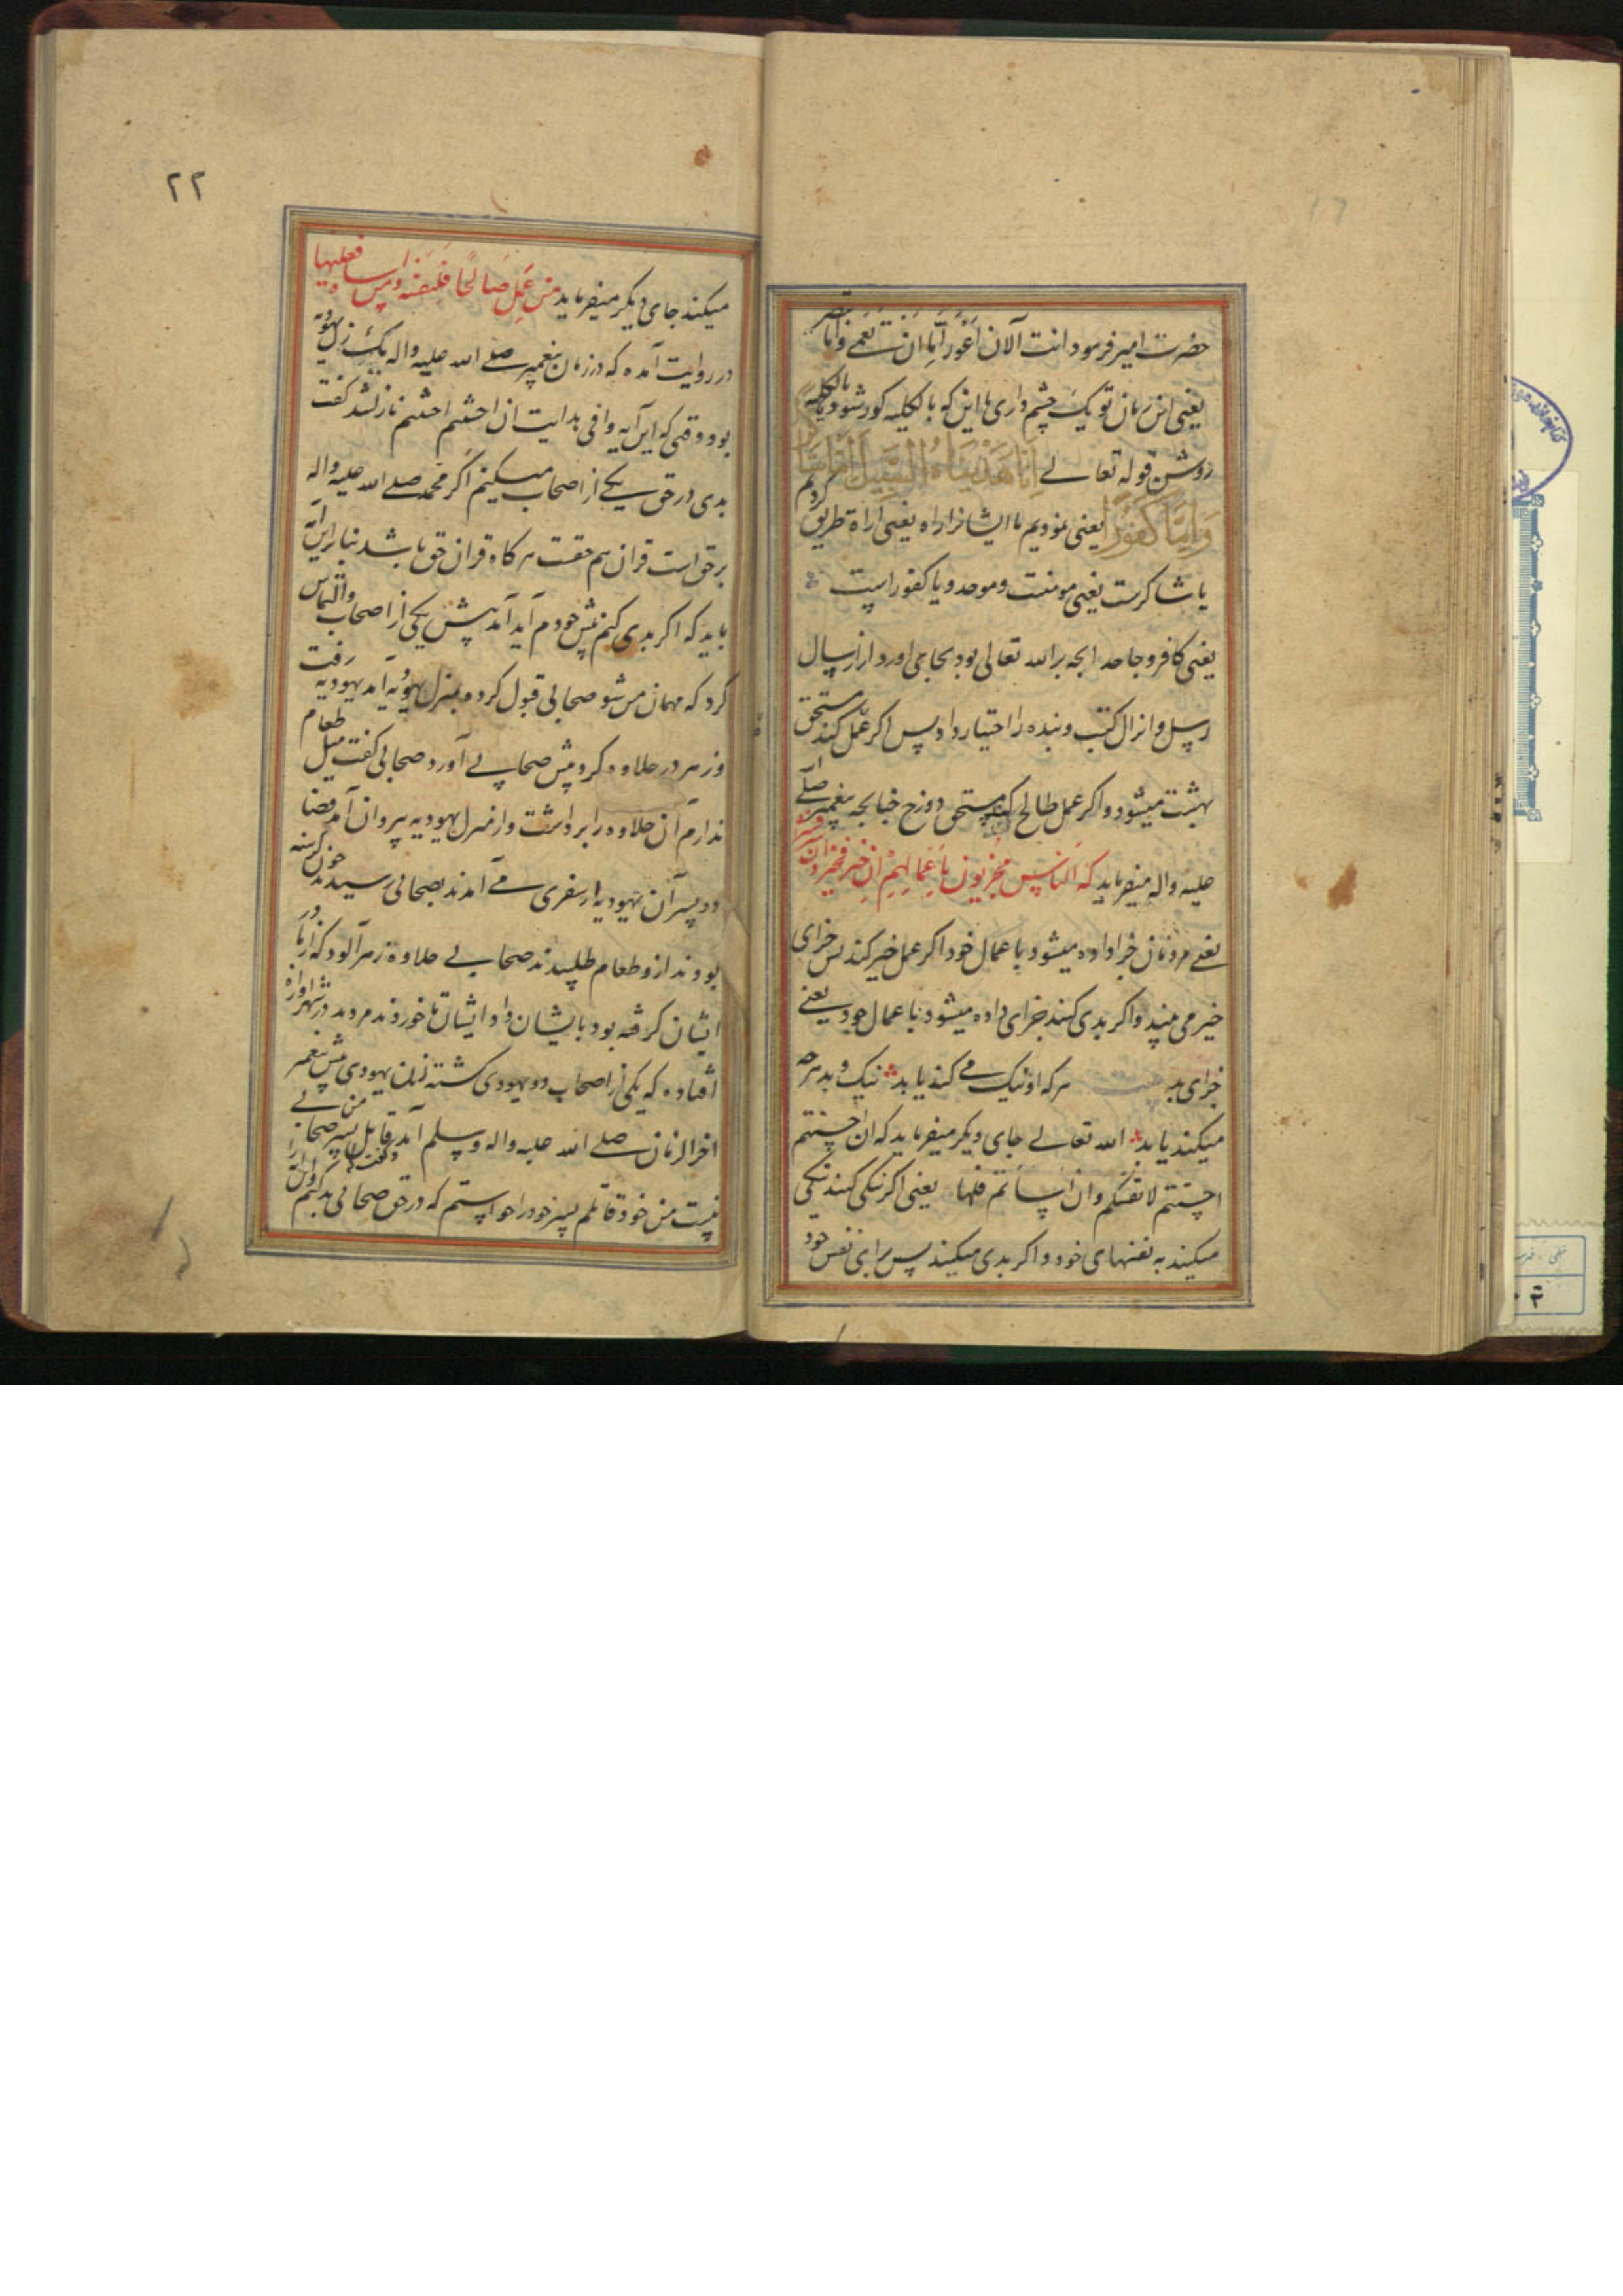 حضرت امیر فرمود انت الان اعور اما ان تعمی و اما تبصر
یعنی این زمان تو یک چشم داری یا این که بالکلیه کور شود یا بالکلیه
روشن قوله تعالے اِنّا هَدَیناهُ السَّبیلَ اِمّا شاکِراً
وَاِمّا کَفُوراً یعنی نمودیم ما ایشانرا راه یعنی اراة طریق کردیم
یا شاکرست یعنی مومنست و موحد و یا کفور است
یعنی کافر و جاحد انچه بر الله تعالی بود بجا می اورد از ارسال
رسل و انزال کتب و بنده را اختیار داد پس اکر عمل کند مستحق
بهشت میشود و اکر عمل طالح کند مستحق دوزخ چنانچه پیغمبر صلے الله
علیه واله میفرماید که الناس مجزیون باعمالهم ان خیر فخیر و ان شر فشر
یعنے مردمان جزا داده میشود با عمال خود اکر عمل خیر کند پس جزای
خیر می بیند و اکر بدی کند جزای داده میشود با عمال خود یعنے
جزای بد هر که او نیک مے کند یابد نیک و بد هر چه
میکند یابد الله تعالے جای دیکر میفرماید که ان احسنتم
احسنتم لانفسکم و ان اساتم فلها یعنی اکر نیکی کنید نیکی
میکنید به نفسهای خود و اکر بدی میکنید پس برای نفس خود
۲۲
میکنید جای دیکر میفرماید من عمل صالحا فلنفسه و من اسا فعلیها
در روایت آمده که در زمان پیغمبر صلے الله علیه واله یک زن یهودیه
بود وقتی که این آیه وافی هدایت ان احسنتم احسنتم نازل شد کفت
بدی در حق یکے از اصحاب میکنم اکر محمد صلے الله علیه واله
بر حق است قران هم حقست هر کاه قران حق باشد بنا بر این آیه
باید که اکر بدی کنم پیش خودم آید آمد پیش یکی از اصحاب والتماس
کرد که مهمان من شو صحابی قبول کرد و بمنزل یهودیه آمد یهودیه رفت
و زهر در حلاوه کرد پیش صحابے آورد صحابی کفت میل طعام
ندارم آن حلاوه را برداشت و از منزل یهودیه بیرون آمد قضا
دو پسر آن یهودیه از سفری مے آمدند بصحابی رسیدند چون کرسنه
بودند ازو طعام طلبیدند صحابے حلاوة زهر آلود که از مادر
ایشان کرفته بود بایشان داد ایشان تا خوردند مردند در شهر اوازه
افتاده که یکی از اصحاب دو یهودی کشته زن یهودی پیش پیغمبر
اخر الزمان صلے الله علیه واله وسلم آمد و کفت قاتل پسر من صحابے
نیست من خود قاتلم پسر خود را خواستم که در حق صحابی بد کنم